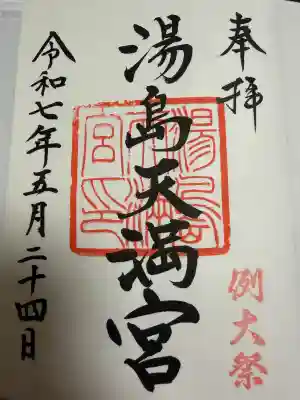 奉拝
例大祭
湯島天満宮
令和七年五月二十四日